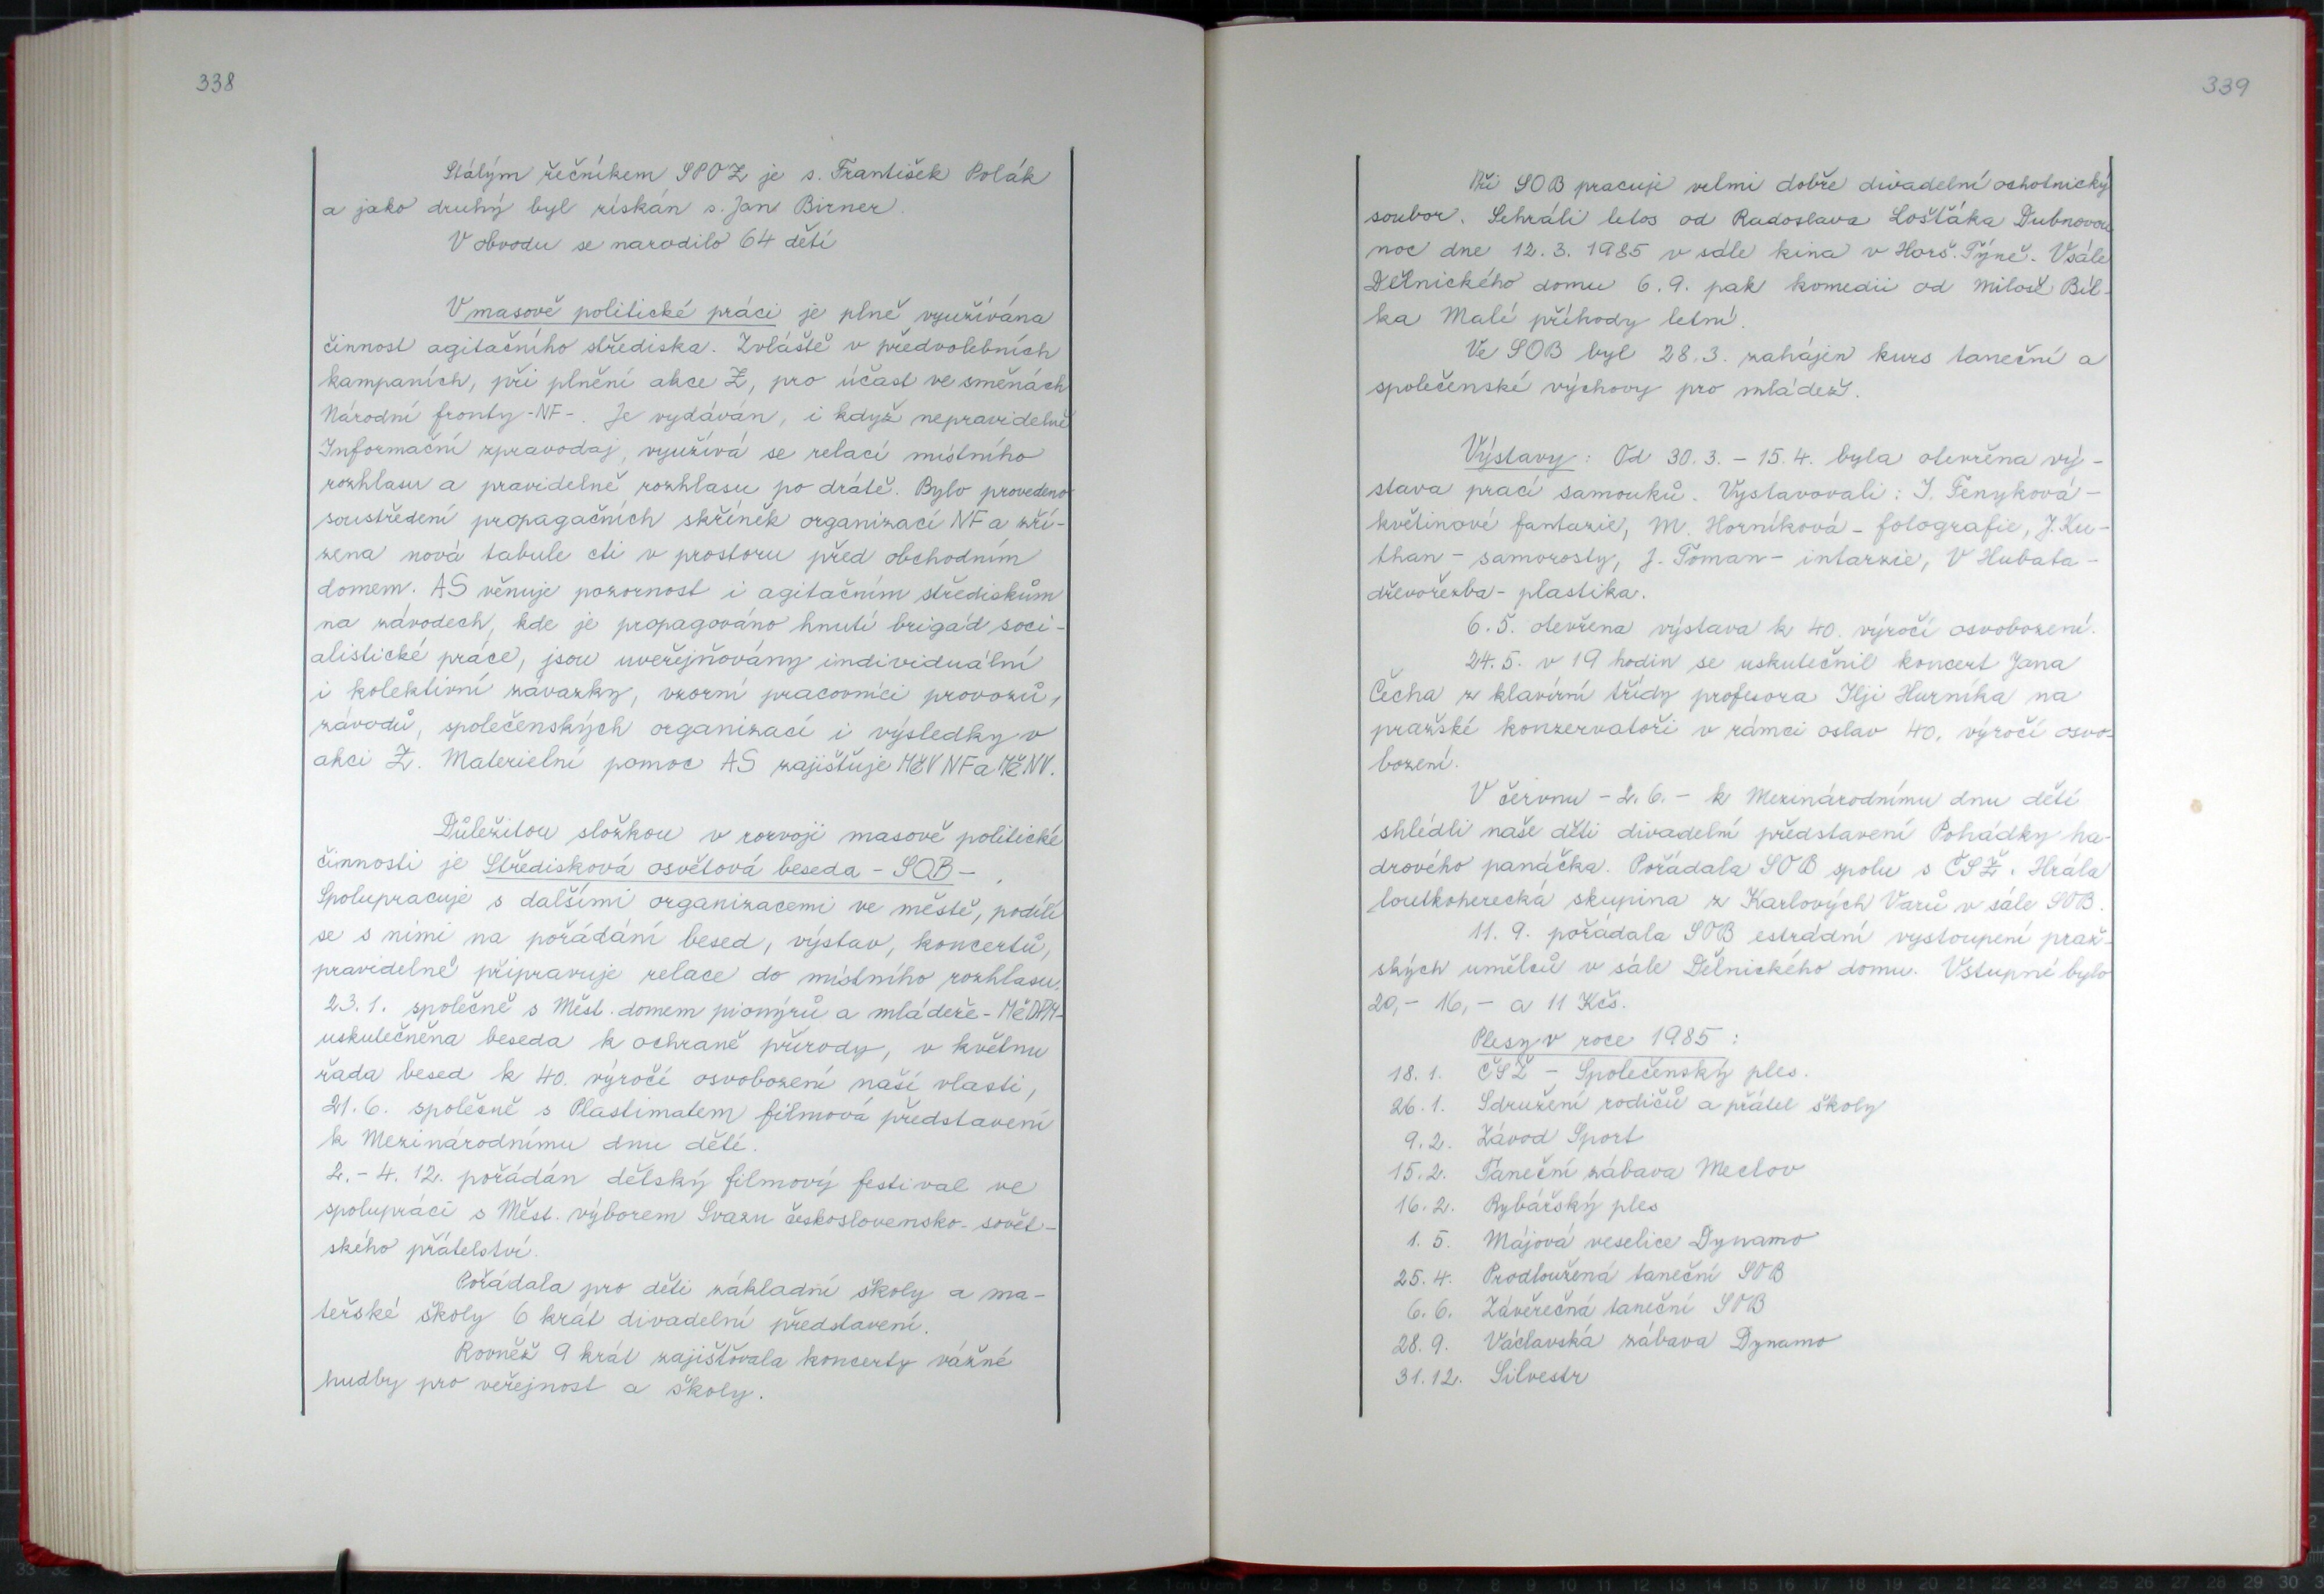 338
Stálým řečníkem SPOZ je s. František Polák
a jako druhý byl získán s. Jan Birner.
V obvodu se narodilo 64 dětí
V masově politické práci je plně využívána
činnost agitačního střediska. Zvláště v předvolebních
kampaních, při plnění akce Z, pro účast ve směnách
Národní fronty -NF-. Je vydáván, i když nepravidelně
Informační zpravodaj, využívá se relací místního
rozhlasu a pravidelně rozhlasu po drátě. Bylo provedeno
soustředení propagačních skříněk organizací NF a zří-
zena nová tabule cti v prostoru před obchodním
domem. AS věnuje pozornost i agitačním střediskům
na závodech, kde je propagováno hnutí brigád soci-
alistické práce, jsou uveřejňovány individuální
i kolektivní závazky, vzorní pracovníci provozů,
závodů, společenských organizací i výsledky v
akci Z. Materielní pomoc AS zajištuje MěV NF a MěNV.
Důležitou složkou v rozvoji masově politické
činnosti je Středisková osvětová beseda - SOB -.
Spolupracuje s dalšími organizacemi ve městě, podílí
se s nimi na pořádání besed, výstav, koncertů,
pravidelně připravuje relace do místního rozhlasu.
23.1. společně s Měst. domem pionýrů a mládeže - MěDPM-
uskutečněna beseda k ochraně přírody, v květnu
řada besed k 40. výročí osvobození naší vlasti,
21.6. společně s Plastimatem filmová představení
k Mezinárodnímu dnu dětí.
2. - 4. 12. pořádán dětský filmový festival ve
spolupráci s Měst. výborem Svazu československo- sovět-
ského přátelství.
Pořádala pro děti základní školy a ma-
teřské školy 6 krát divadelní představení.
Rovněž 9 krát zajišťovala koncerty vážné
hudby pro veřejnost a školy.
339
Při SOB pracuje velmi dobře divadelní ochotnický
soubor. Sehráli letos od Radoslava Lošťáka Dubnovou
noc dne 12.3. 1985 v sále kina v Horš. Týně. V sále
Dělnického domu 6.9. pak komedii od Miloše Bíl-
ka Malé příhody letní.
Ve SOB byl 28.3. zahájen kurs taneční a
společenské výchovy pro mládež.
Výstavy: Od 30.3. - 15.4. byla otevřena vý-
stava prací samouků. Vystavovali: I. Fenyková -
květinové fantazie, M. Horníková - fotografie, J. Ku-
than - samorosty, J. Toman - intarzie, V Hubata -
dřevořezba - plastika.
6.5. otevřena výstava k 40. výročí osvobození.
24.5. v 19 hodin se uskutečnil koncert Jana
Čecha z klavírní třídy profesora Ilji Hurníka na
pražské konzervatoři v rámci oslav 40. výročí osvo-
bození.
V červnu - 2.6. - k Mezinárodnímu dnu dětí
shlédli naše děti divadelní představení Pohádky ha-
drového panáčka. Pořádala SOB spolu s ČSŽ. Hrála
loutkoherecká skupina z Karlových Varů v sále SOB.
11.9. pořádala SOB estrádní vystoupení praž-
ských umělců v sále Dělnického domu. Vstupné bylo
20,- 16,- a 11 Kčs.
Plesy v roce 1985:
18.1. ČSŽ - Společenský ples.
26.1. Sdružení rodičů a přátel školy
9.2. Závod Sport
15.2. Taneční zábava Meclov
16.2. Rybářský ples
1.5. Májová veselice Dynamo
25.4. Prodloužená taneční SOB
6.6. Závěrečná taneční SOB
28.9. Václavská zábava Dynamo
31.12. Silvestr